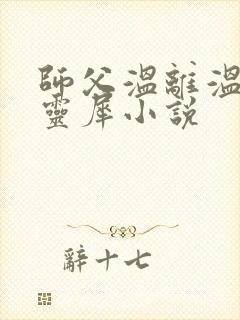 師父溫離溫
靈犀小說
辭十七